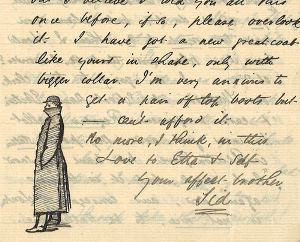 but I believe I told you all this
once before, if so, please overlook
it. I have got a new great coat
like yours in shape, only with
bigger collar. I'm very anxious to
get a pair of top boots but
— can't afford it.
No more, I think, in this
Love to Etha & Self
Your affect. brother
Sid